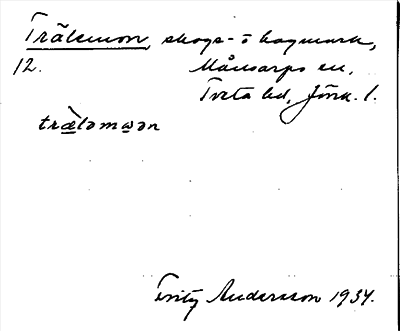 Trälemon, skogs- o hagmark,
12. Månsarps sn,
Tveta hd, Jönk. l.
trælɘmɷɘn
Fritz Andersson 1934.